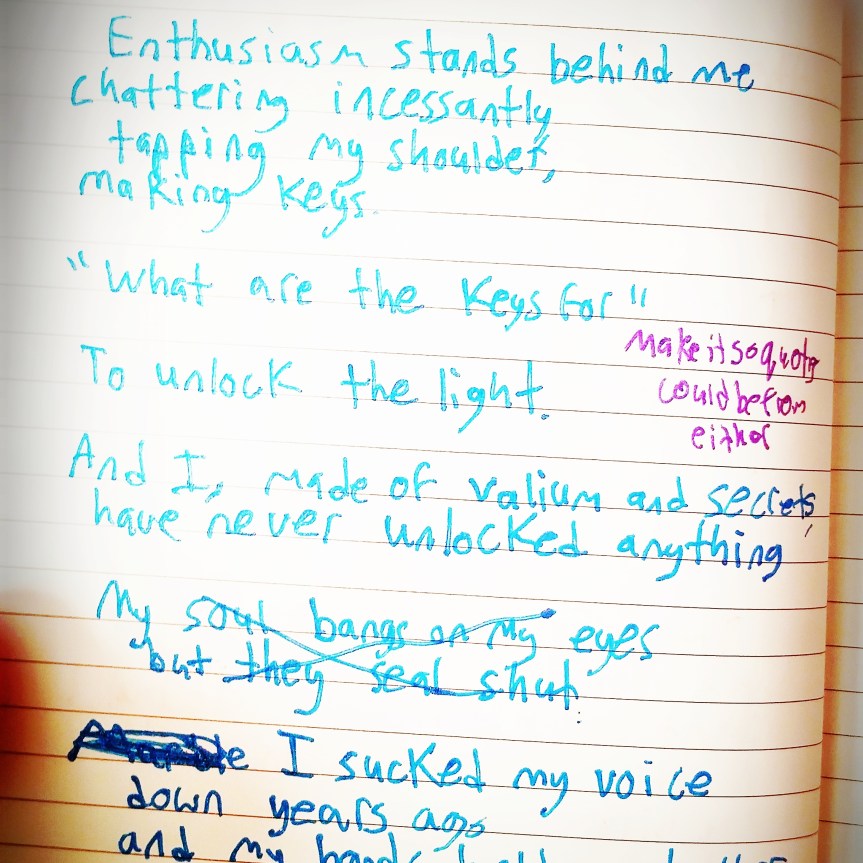 Enthusiasm stands behind me
chattering incessantly
tapping my shoulder,
making keys.
"What are the keys for"
Make it so quote
could be from
either
To unlock the light.
And I, made of valium and secrets,
have never unlocked anything
My soul bangs on my eyes
but they seal shut.
I sucked my voice
down years ago
and my